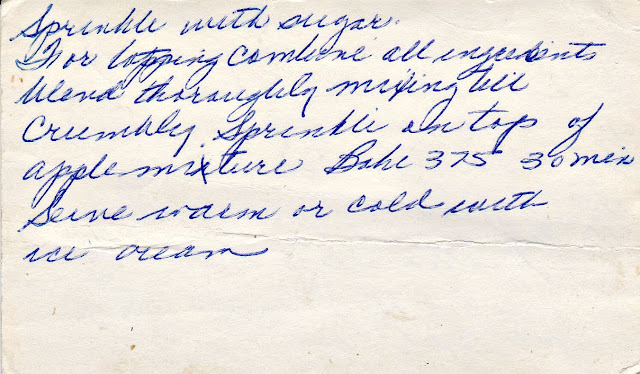 Sprinkle with sugar.
For topping combine all ingredients
blend thoroughly mixing till
crumbly. Sprinkle on top of
apple mixture Bake 375 30 min
Serve warm or cold with
ice cream